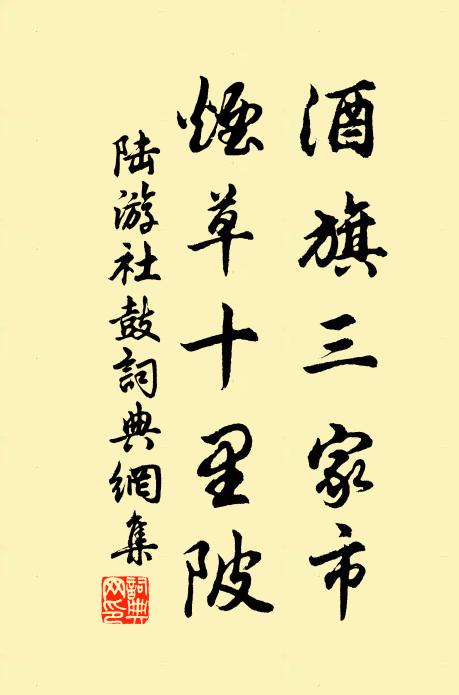 酒旗三家市
煙草十里陂
陆游社鼓詞典網集
詞典網印